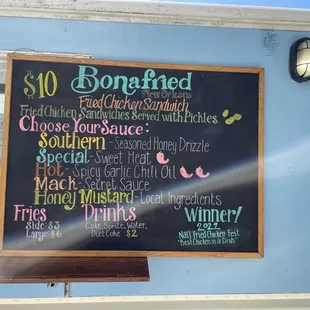 $10 Bonafried
New Orleans
Fried Chicken Sandwich
Fried Chicken Sandwiches Served with Pickles
Choose Your Sauce:
Southern - Seasoned Honey Drizzle
Special - Sweet Heat
Hot - Spicy Garlic Chili Oil
Mack - Secret Sauce
Honey Mustard - Local Ingredients
Fries
Side: $3
Large: $6
Drinks
Coke, Sprite, Water,
Diet Coke $2
Winner!
2022
Nat'l Fried Chicken Fest
"Best Chicken in a Dish"